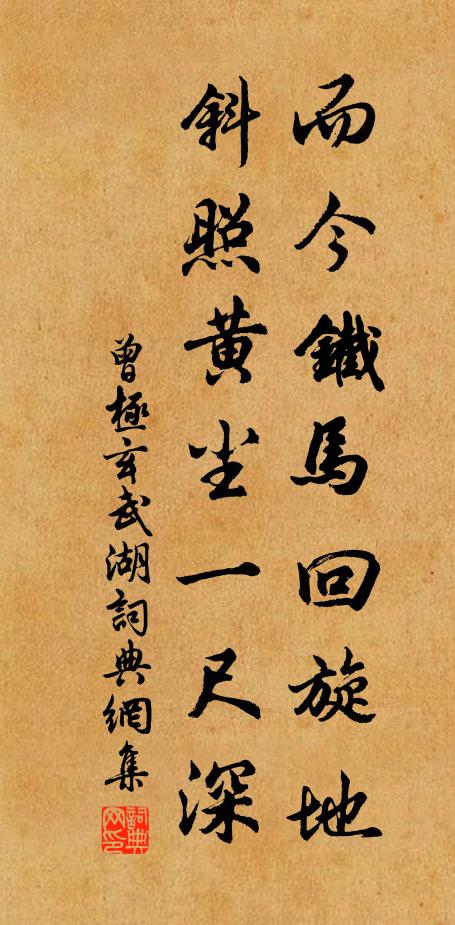 而今鐵馬回旋地
斜照黃尘一尺深
曾極玄武湖詞典網集
詞典网印